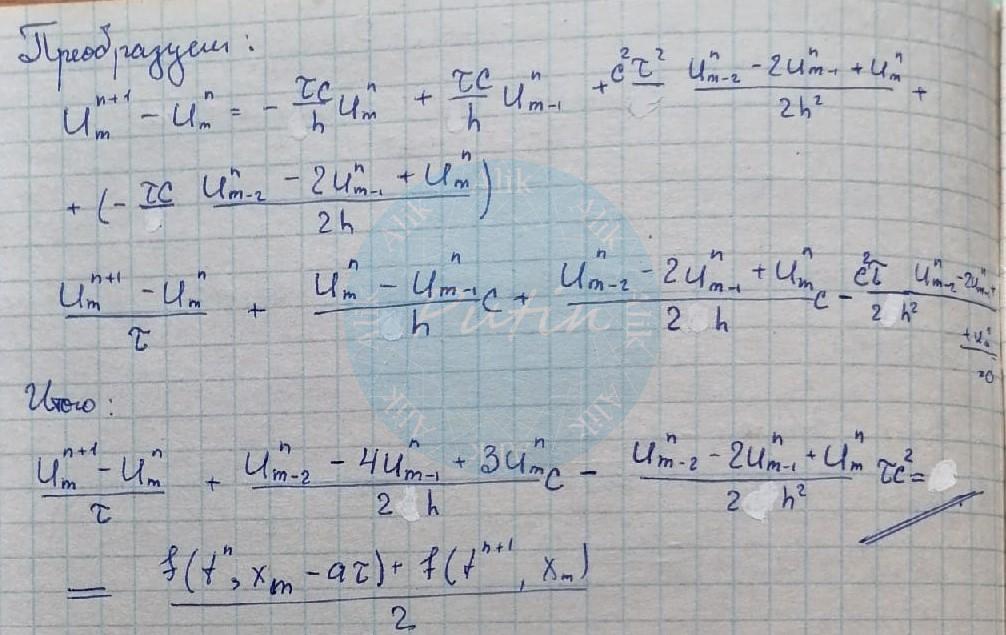 Преобразуем:
U_m^{n+1} - U_m^n = - \frac{τc}{h} U_m^n + \frac{τc}{h} U_{m-1}^n + c^2τ^2 \frac{U_{m-2}^n - 2U_{m-1}^n + U_m^n}{2h^2} +
+ (- τc \frac{U_{m-2}^n - 2U_{m-1}^n + U_m^n}{2h})
\frac{U_m^{n+1} - U_m^n}{τ} + \frac{U_m^n - U_{m-1}^n}{h} c + \frac{U_{m-2}^n - 2U_{m-1}^n + U_m^n}{2h} c - \frac{c^2τ}{2h^2} U_{m-2}^n - 2U_{m-1}^n +
+ U_m^n
=0
Итого:
\frac{U_m^{n+1} - U_m^n}{τ} + \frac{U_{m-2}^n - 4U_{m-1}^n + 3U_m^n}{2h} c - \frac{U_{m-2}^n - 2U_{m-1}^n + U_m^n}{2h^2} τc^2 =
= \frac{f(t^n, x_m - aτ) + f(t^{n+1}, x_m)}{2}
Alik
Alik
Alik
Alik
Putin
Alik
Alik
Alik